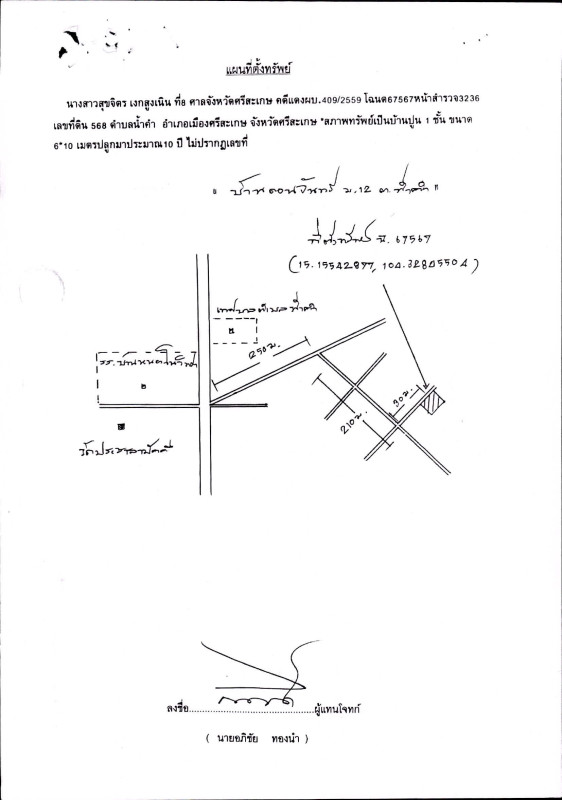 แผนที่ตั้งทรัพย์
นางสาวสุขจิตร เงกสูงเนิน ที่8 ศาลจังหวัดศรีสะเกษ คดีแดงผบ.409/2559 โฉนด67567หน้าสำรวจ3236
เลขที่ดิน 568 ตำบลน้ำคำ อำเภอเมืองศรีสะเกษ จังหวัดศรีสะเกษ *สภาพทรัพย์เป็นบ้านปูน 1 ชั้น ขนาด
6*10 เมตรปลูกมาประมาณ10 ปี ไม่ปรากฏเลขที่
" บ้านดอนจันทร์ ม.12 ต.น้ำคำ "
ที่ตั้งทรัพย์ น. 67567
(15.15542877, 104.32805504)
เทศบาลตำบลน้ำคำ
250 ม.
รร.บ้าน
90 ม.
210 ม.
วัด
ลงชื่อ.......................................ผู้แทนโจทก์
( นายอภิชัย ทองนำ )